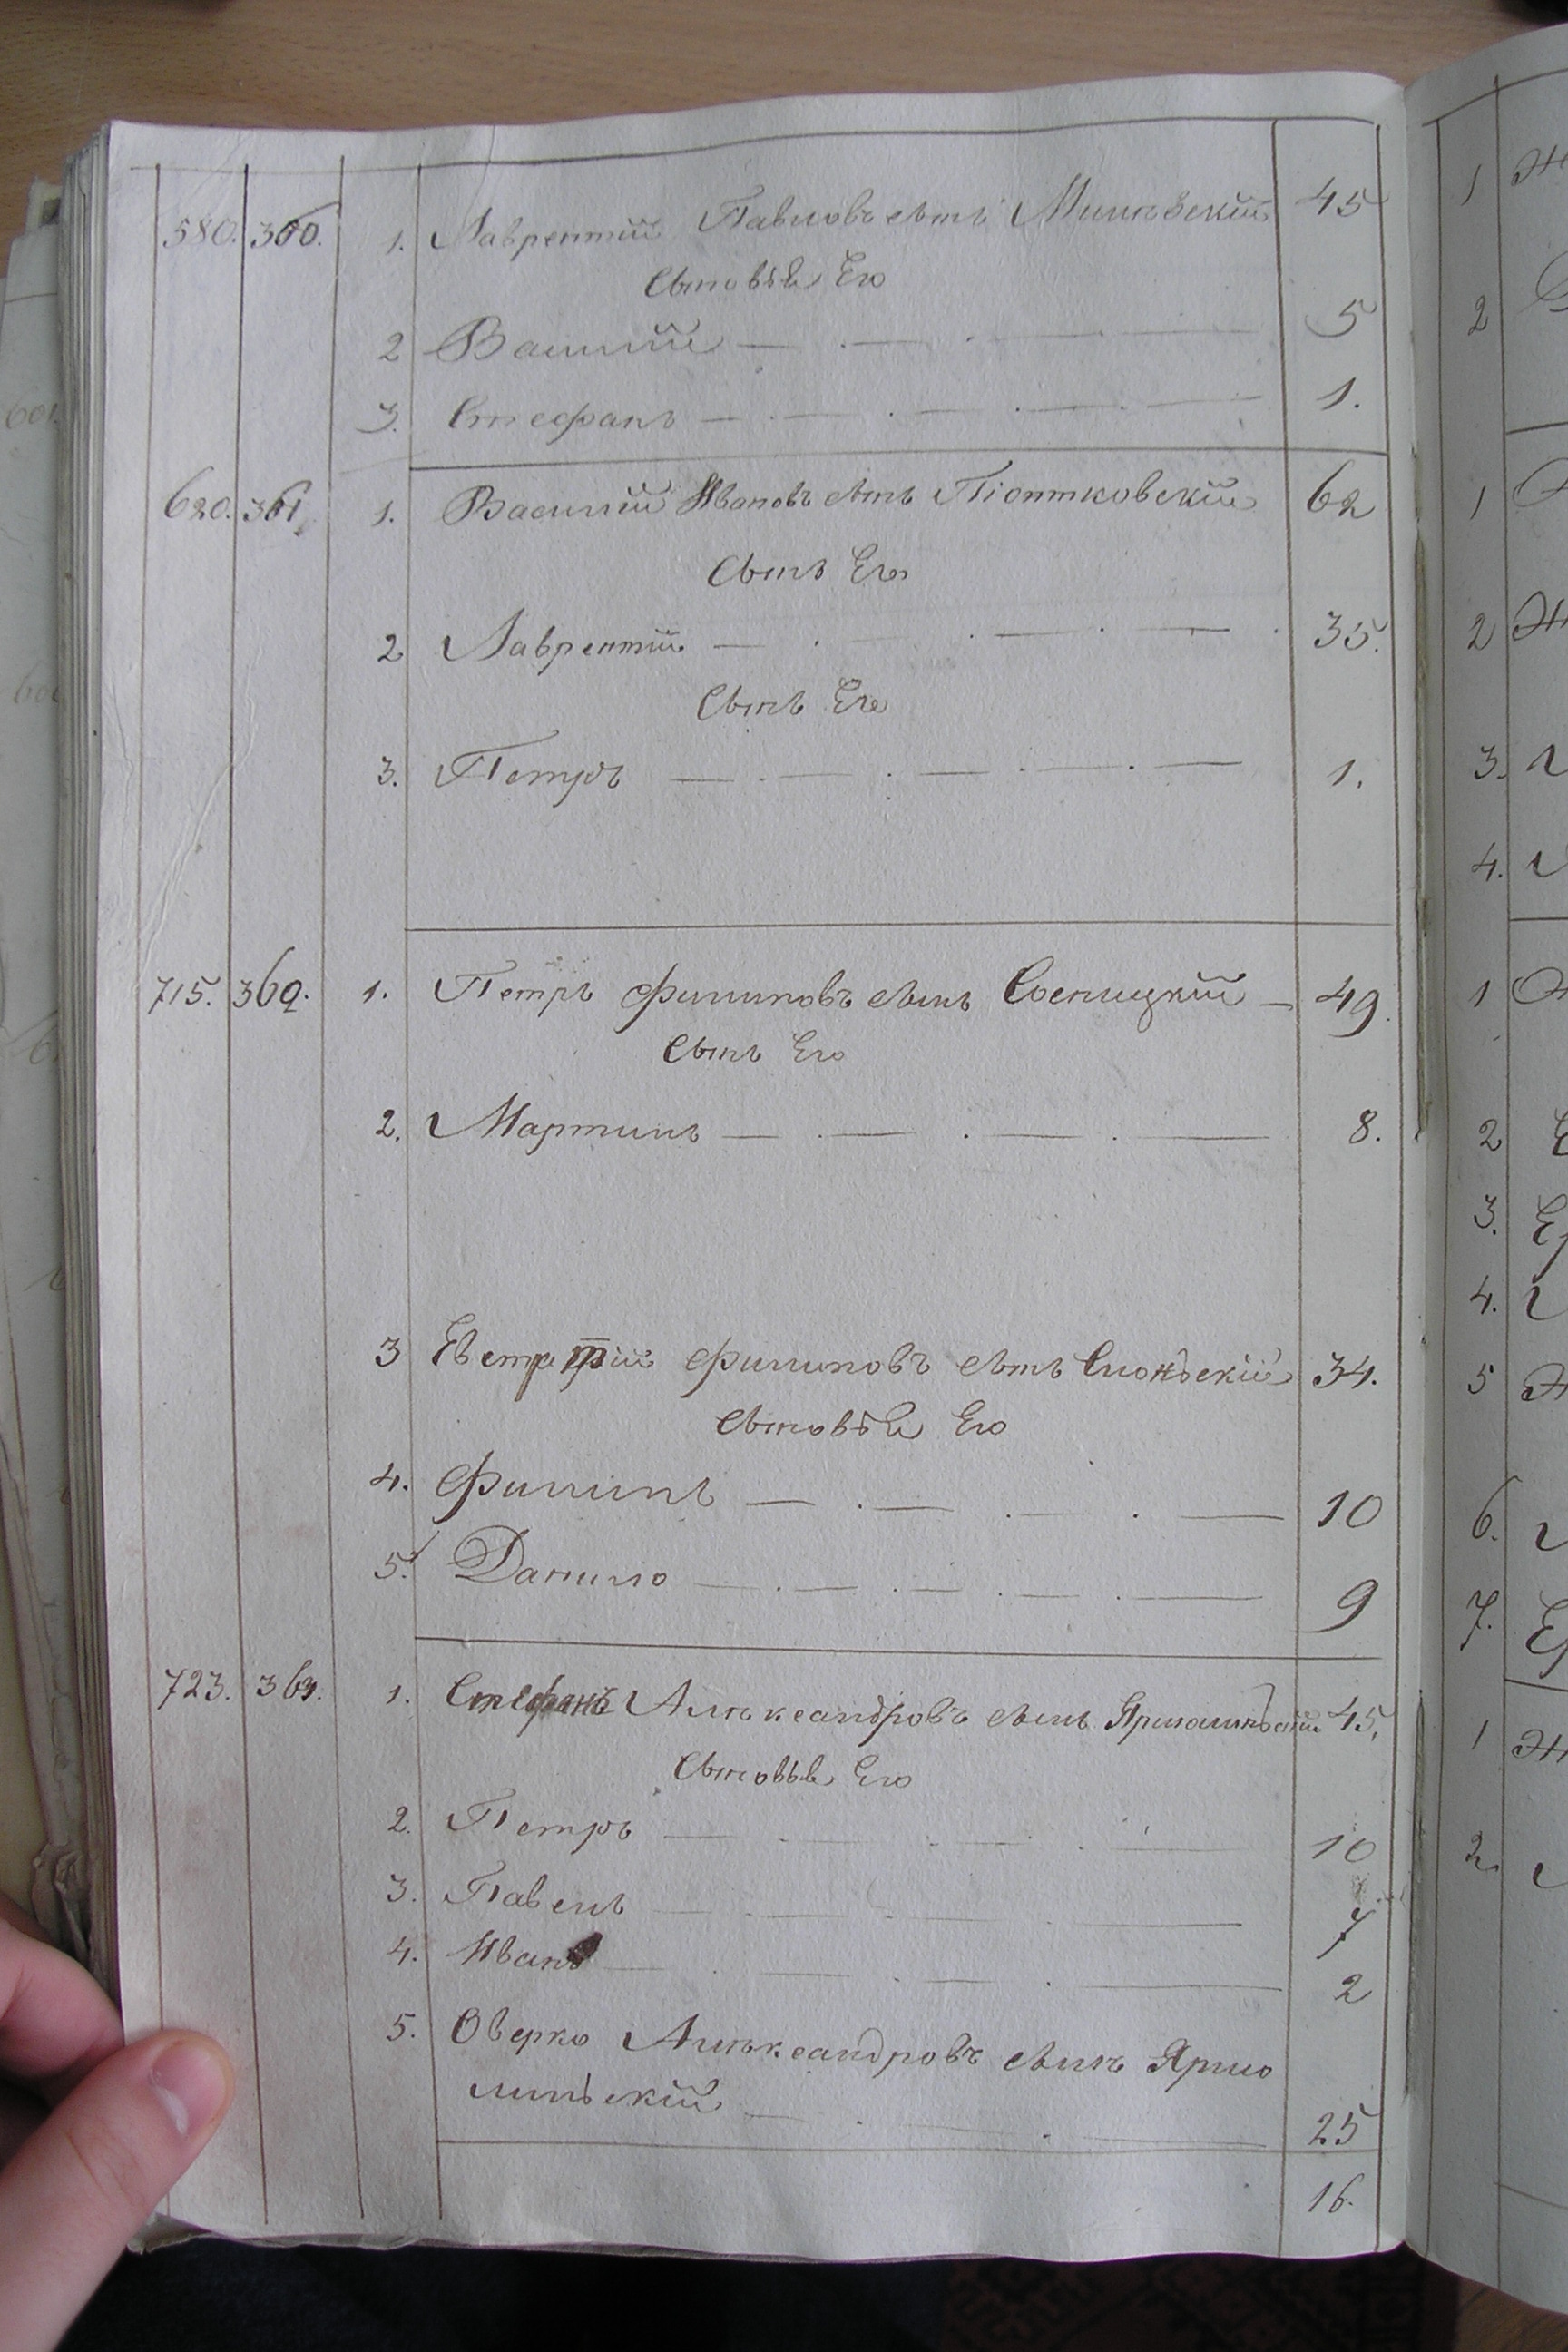 580. 360. 1. Лаврентій Павловъ сынъ 45
Сыновья Его
2 Василій 5
3. Стефанъ 1.
620. 361 1. Василій Ивановъ сынъ Піонтковскій 62
Сынъ Его
2 Лаврентій 35.
Сынъ Его
3. Петръ 1.
715. 362. 1. Петръ Филиповъ сынъ Сосницкій 49.
Сынъ Его
2. Мартинъ 8.
3 Евстратій Филиповъ сынъ 34.
Сыновья Его
4. Филипъ 10
5. Данило 9
723. 363. 1. Стефанъ Алѣксандровъ сынъ Ярмолинскій 45.
Сыновья Его
2. Петръ 10
3. Павелъ 7
4. Иванъ 2
5. Оверко Алѣксандровъ сынъ Ярмо
линскій 25
16.
1
2
1
2
3.
4.
1
2
3.
4.
5
6.
7.
1
2.